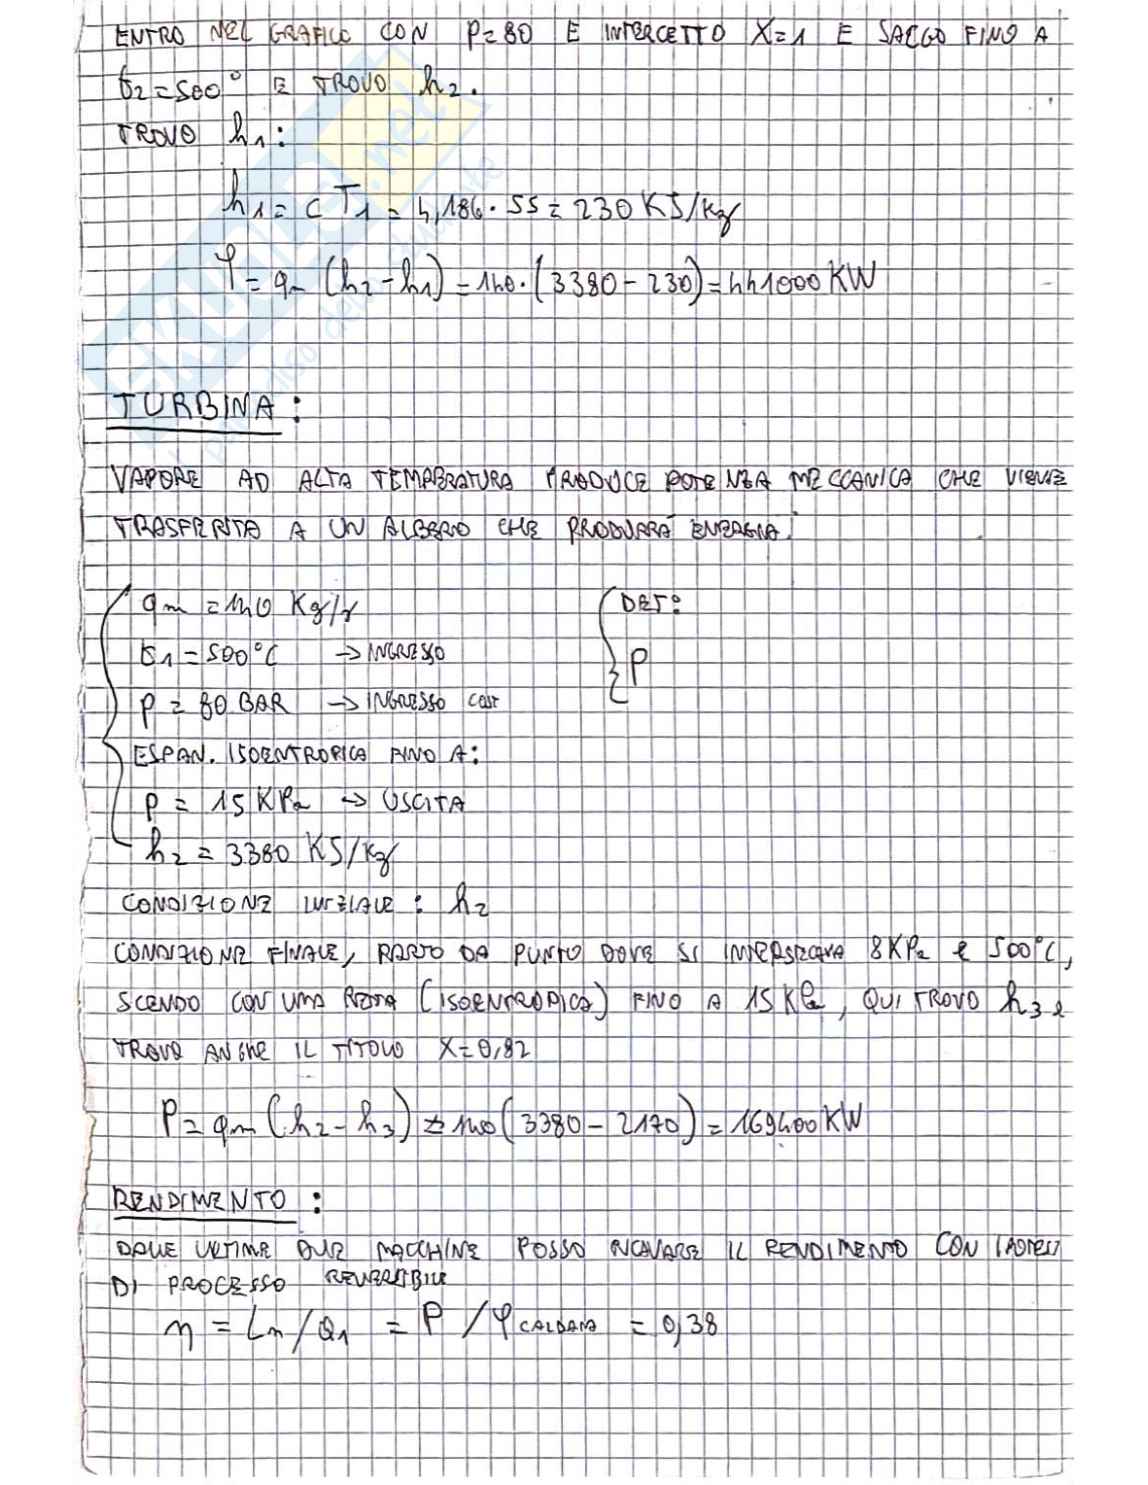 ENTRO NEL GRAFICO CON P=80 E INTERCETTO X=1 E SALGO FINO A
t2=500° E TROVO h2.
TROVO h1:
h1 = c T1 = 4,186 · 55 = 230 KJ/Kg
φ = qm (h2-h1) = 140 · (3380 - 230) = 441000 KW
TURBINA:
VAPORE AD ALTA TEMPERATURA PRODUCE POTENZA MECCANICA CHE VIENE
TRASFERITA A UN ALBERO CHE PRODURRÀ ENERGIA.
qm = 140 Kg/s
t1 = 500°C → INGRESSO
P = 80 BAR → INGRESSO cost
ESPAN. ISOENTROPICA FINO A:
P = 15 KPa → USCITA
h2 = 3380 KJ/Kg
DET:
P
CONDIZIONE INIZIALE : h2
CONDIZIONE FINALE, PARTO DA PUNTO DOVE SI INTERSECAVA 8KPa e 500°C,
SCENDO CON UNA RETTA (ISOENTROPICA) FINO A 15 KPa, QUI TROVO h3 e
TROVO ANCHE IL TITOLO X=0,82
P = qm (h2 - h3) = 140 (3380 - 2170) = 169400 KW
RENDIMENTO :
DALLE ULTIME DUE MACCHINE POSSO RICAVARE IL RENDIMENTO CON IPOTESI
DI PROCESSO REVERSIBILE
η = Ln/Q1 = P / φ CALDAIA = 0,38